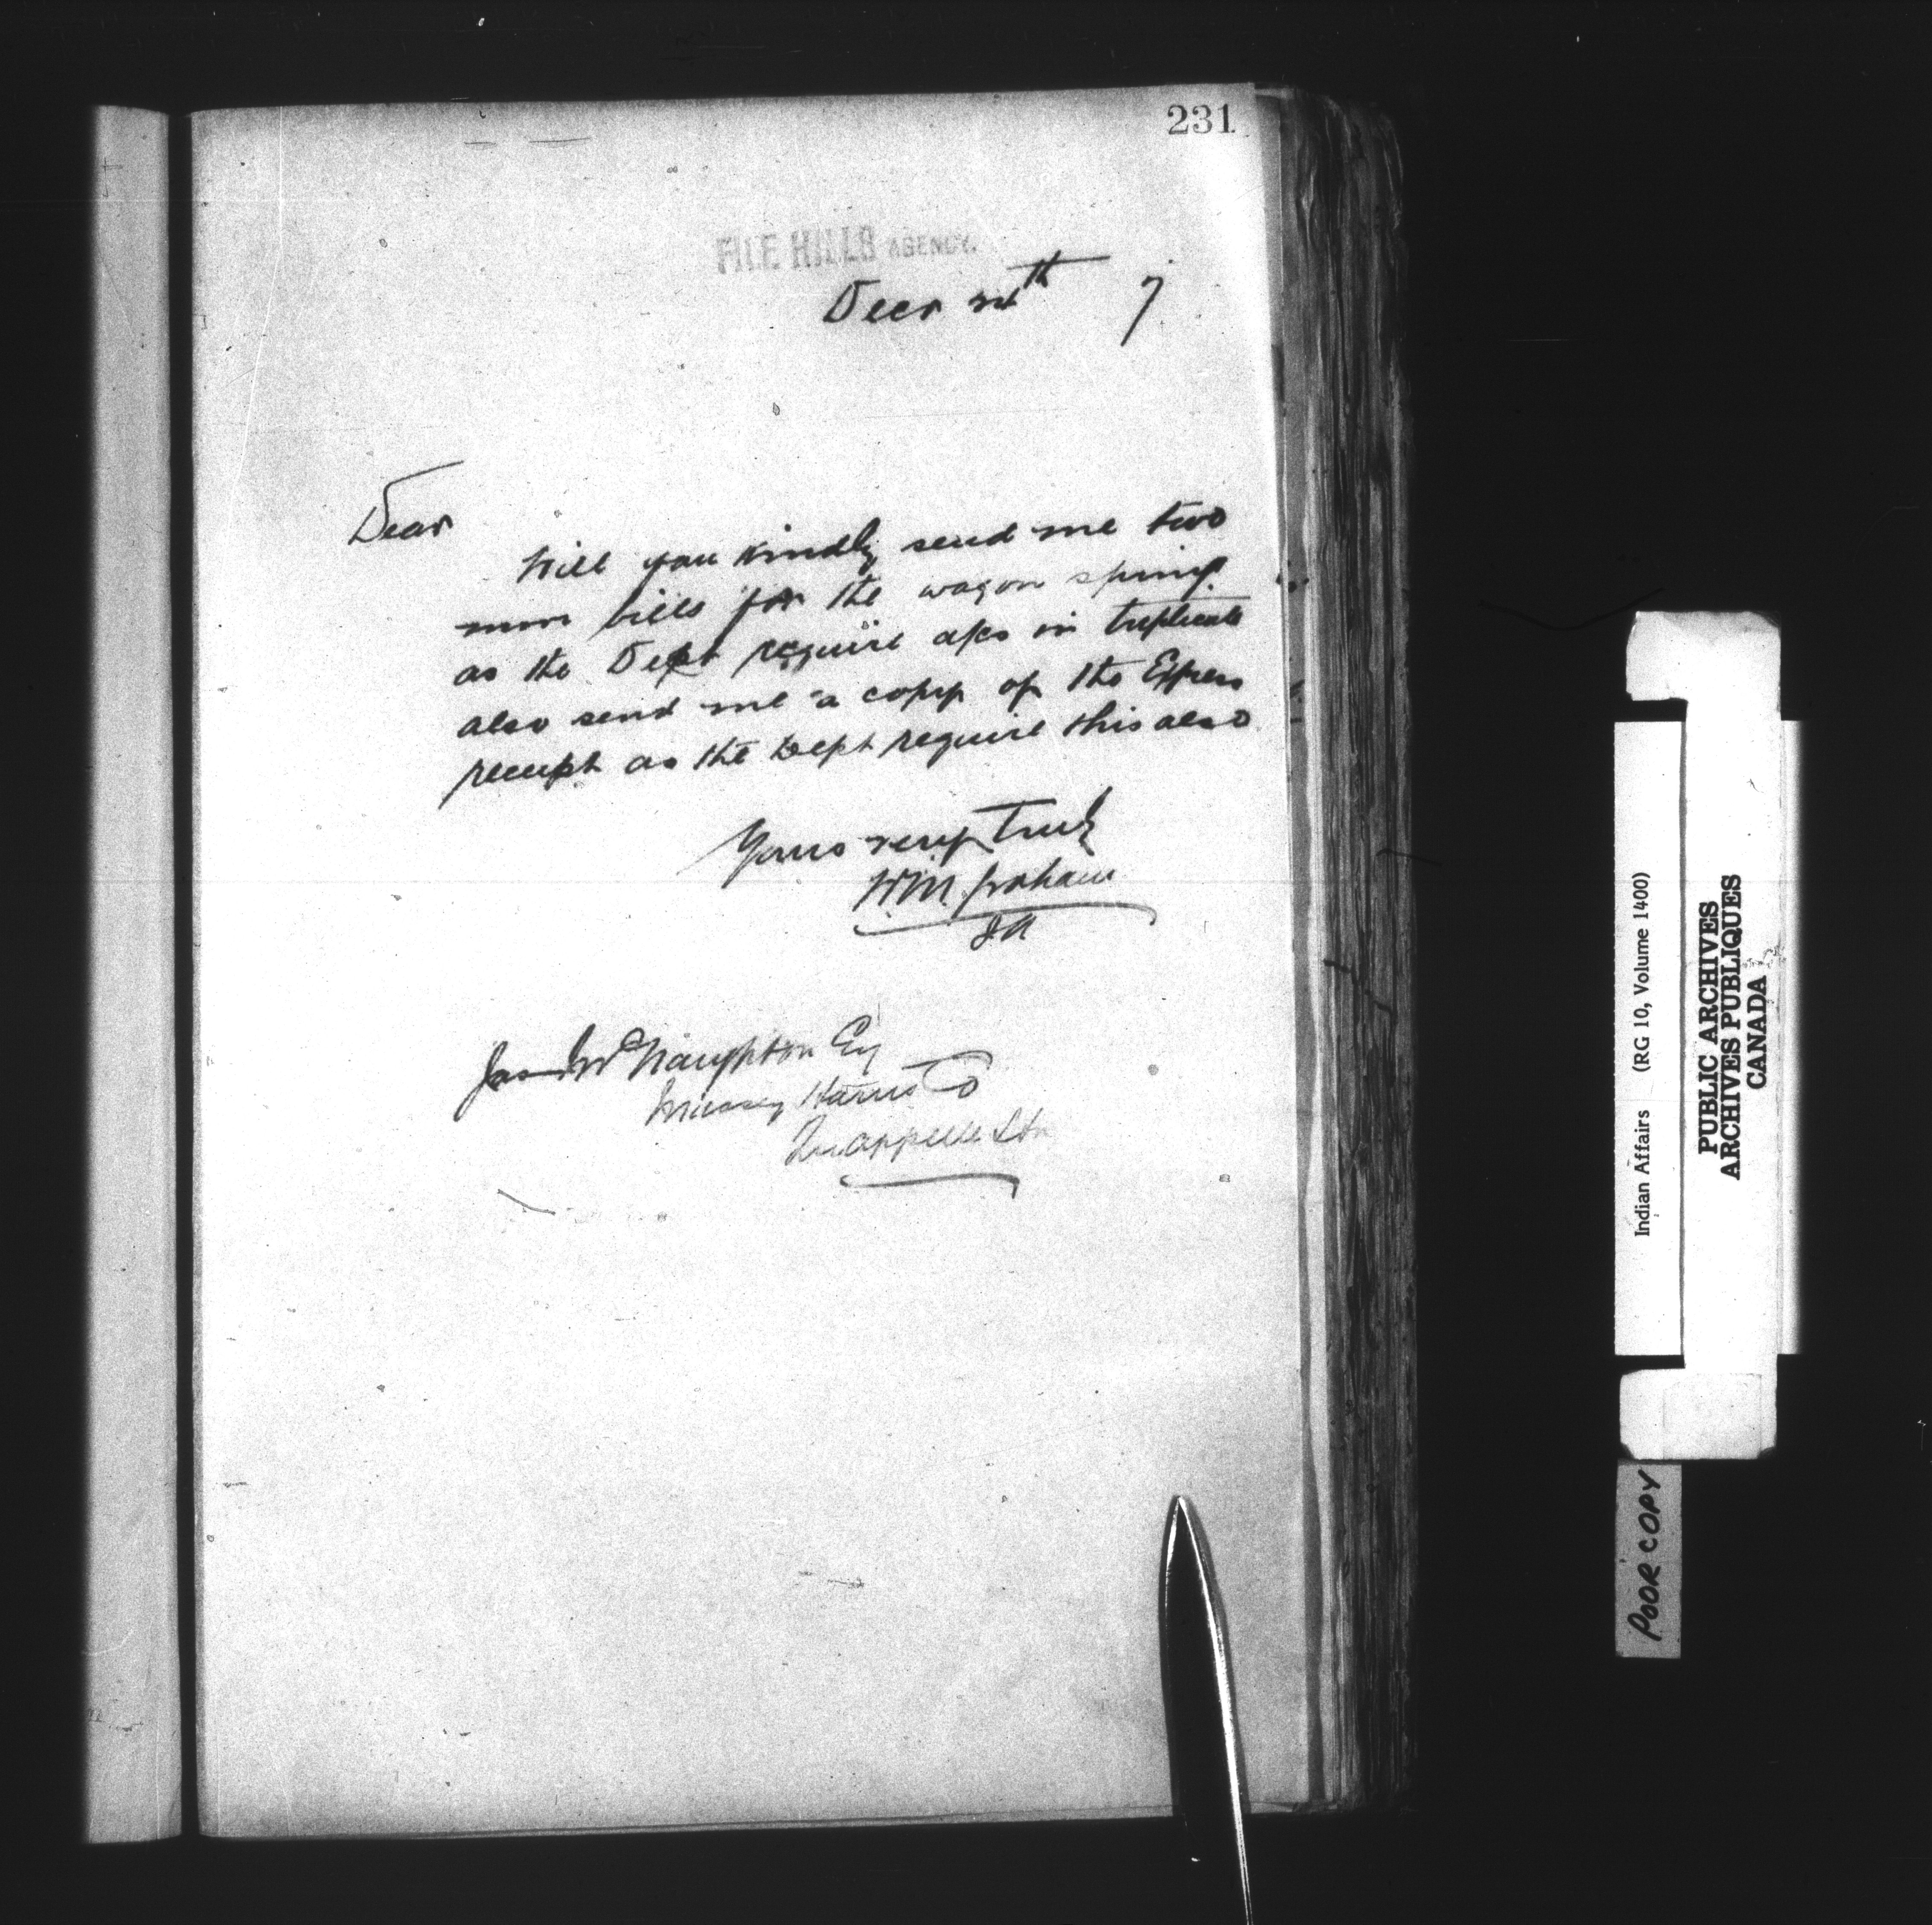 231
FILE HILLS AGENCY.
Decr 24th 7
Dear
Will you kindly send me two
more bills for the wagon springs
as the Dept require a/cs in triplicate
also send me a copy of the Express
receipt as the Dept require this also
Yours very truly
W.M. Graham
IA
Jas McNaughton Esq
Massey Harris Co
Qu'appelle Stn
Indian Affairs (RG 10, Volume 1400)
PUBLIC ARCHIVES
ARCHIVES PUBLIQUES
CANADA
POOR COPY